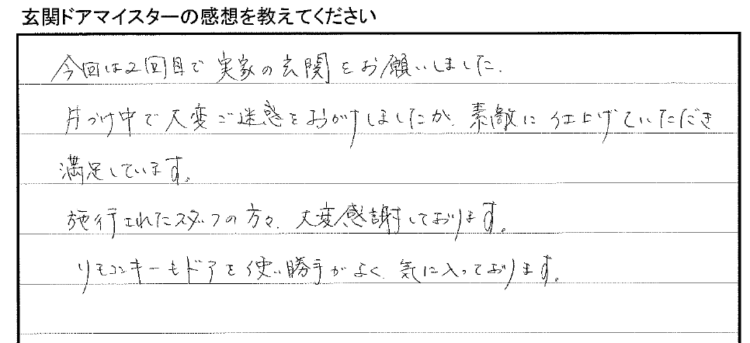 玄関ドアマイスターの感想を教えてください
今回は2回目で実家の玄関をお願いしました。
片づけ中で大変ご迷惑をおかけしましたが、素敵に仕上げていただき
満足しています。
施行されたスタッフの方々、大変感謝しております。
リモコンキーもドアを使い勝手がよく、気に入っております。